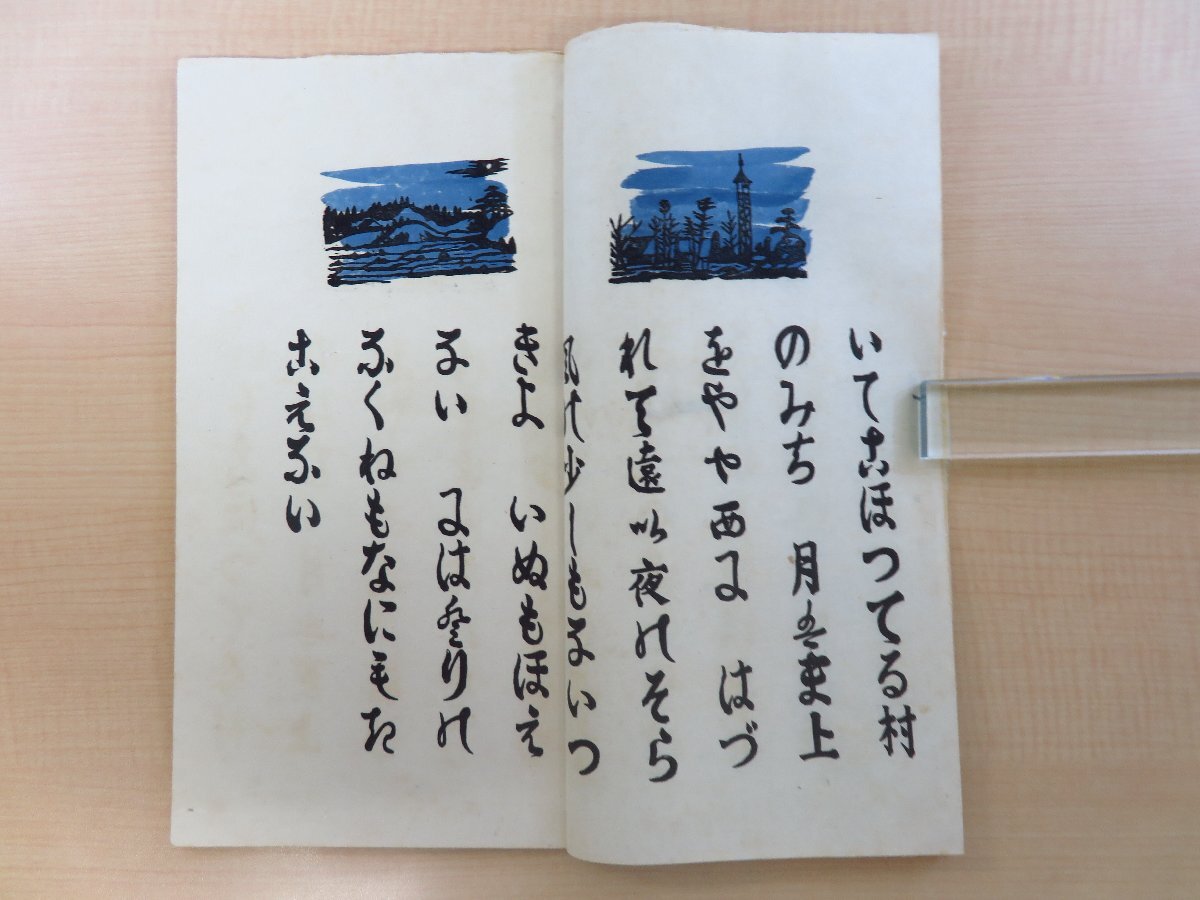 いてこほつてる村
のみち　月はま上
をやや西に　はづ
れて遠い夜のそら
風の少しもないつ
きよ　いぬもほえ
ない　にはとりの
なくねもなにもき
こえない